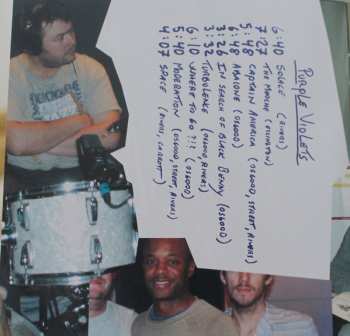 PURPLE VIOLETS
6:40 SOLACE (RIVERS)
7:27 THE MOOCHE (ELLINGTON)
5:48 CAPTAIN AMERICA (OSGOOD, STREET, RIVERS)
6:48 ABALONE (OSGOOD)
3:26 IN SEARCH OF BLACK BENNY (OSGOOD)
3:32 TURBULENCE (OSGOOD, RIVERS)
6:10 WHERE TO GO ?!! (OSGOOD)
5:40 MODERATION (OSGOOD, STREET, RIVERS)
4:07 SPACE (RIVERS, CARROTT)